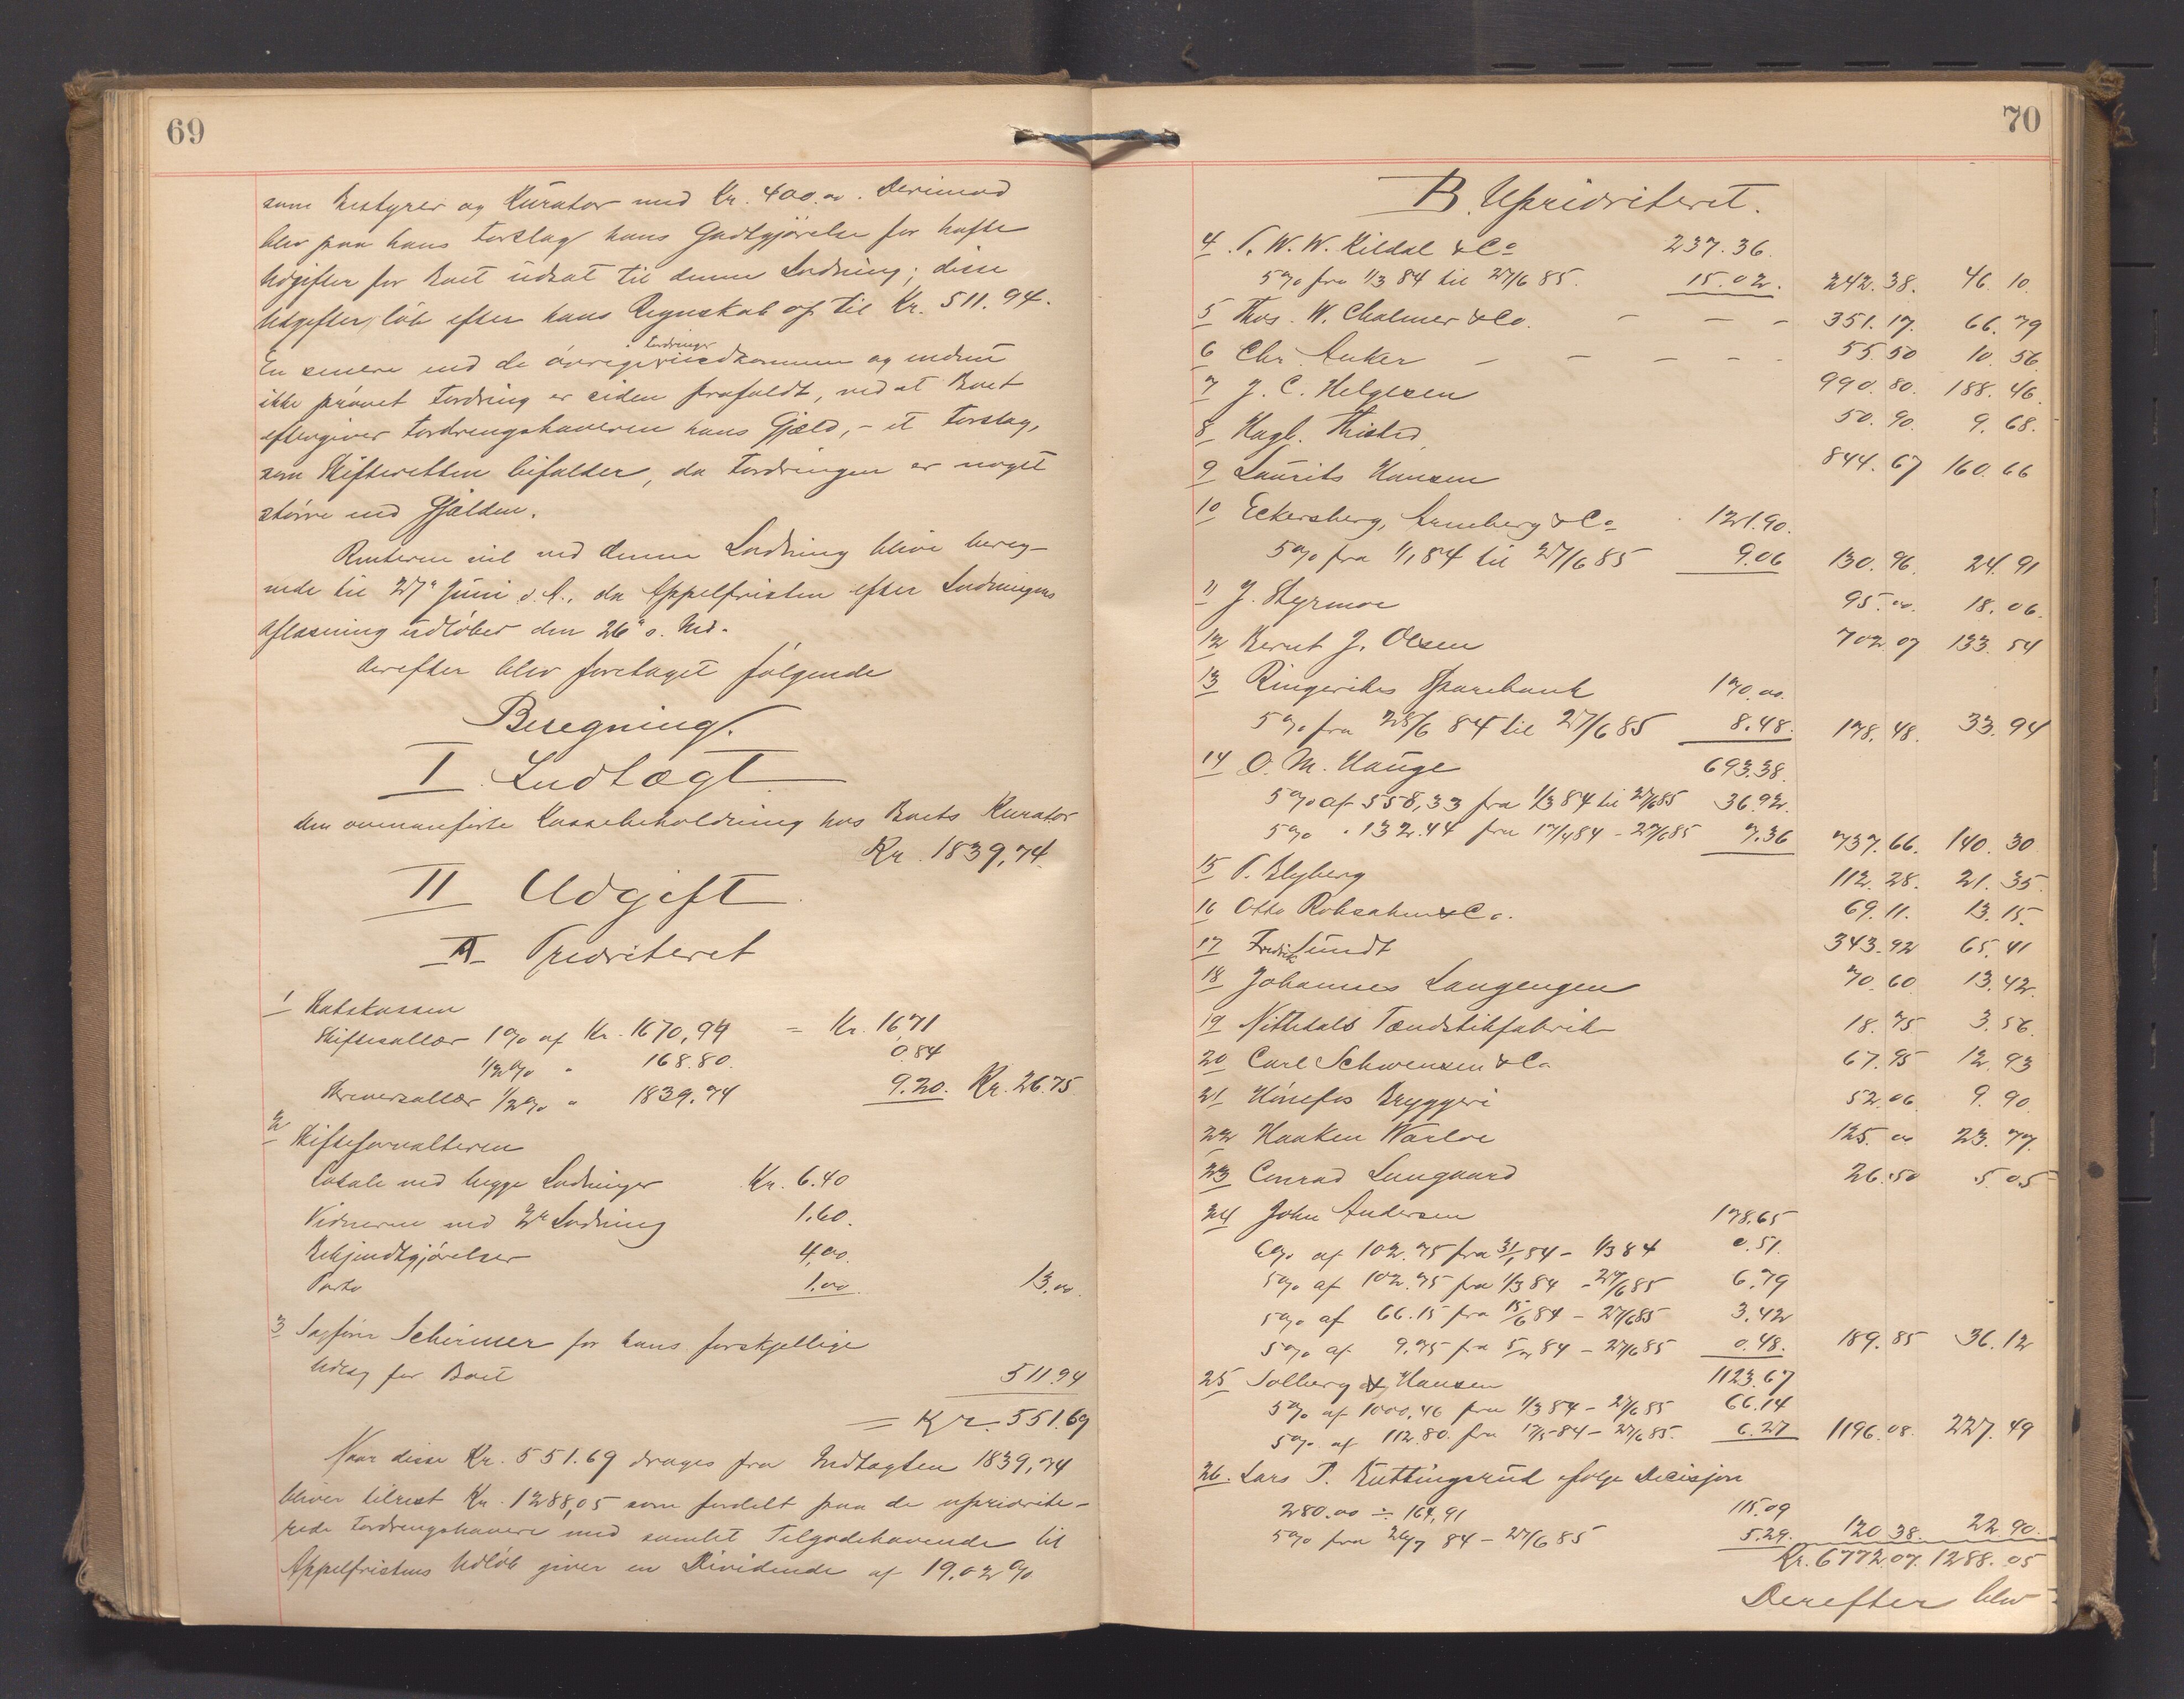 69
som Bestyrer og Kurator med Kr. 400.00. Derimod
blev paa hans Forslag hans Godtgjörelse for hafte
Udgifter for Boet udsat til denne Lodning; disse
Udgifter löb efter hans Regnskab op til Kr. 511.94.
En senere end de övrige Fordringer indkommen og endnu
ikke prövet Fordring er siden frafaldt, ved at Boet
eftergiver Fordringshaveren hans Gjæld, - et Forslag,
som Skifteretten bifalder, da Fordringen er noget
större end Gjælden.
Renterne vil ved denne Lodning blive bereg-
nede til 27de Juni d. A., da Appelfristen efter Lodningens
Aflæsning udlöber den 26de s. Md.
Derefter blev foretaget fölgende
Beregning.
I Indtægt
den ovenanförte Kassebeholdning hos Boets Kurator
Kr. 1839,74.
II Udgift
A Prioriteret
1 Statskassen
Skiftesallær 1 % af Kr. 1670,94 = Kr. 16,71
1/2 % " 168.80. 0.84
Skriversallær 1/2 % " 1839.74 9.20. Kr. 26.75
2 Skifteforvalteren
Lokale ved begge Lodninger Kr. 6.40
Vidnerne ved 2den Lodning 1.60.
Bekjendtgjörelser 4,00.
Porto 1.00. 13,00.
3 Sagförer Schirmer for hans forskjellige
Udlæg for Boet 511.94
= Kr. 551.69
Naar disse Kr. 551.69 drages fra Indtægten 1839,74
bliver tilrest Kr. 1288,05 som fordelt paa de upriorite-
rede Fordringshavere med samlet Tilgodehavende til
Appelfristens Udlöb giver en Dividende af 19.02 %
70
B. Uprioriteret.
4 P. W. W. Kildal & Co 237.36.
5 % fra 1/3 84 til 27/6 85. 15.02. 242.38. 46.10.
5 Thos. W. Chalmer & Co. - - - 351.17. 66.79
6 Chr. Anker - - - - 55.50 10.56
7 J. C. Helgesen 990.80. 188.46.
8 Hagb. Thisted 50.90. 9.68.
9 Laurits Hansen 844.67 160.66
10 Eckersberg, Arneberg & Co 121.90.
5 % fra 1/1 84 til 27/6 85 9.06 130.96. 24.91
11 J. Styrmoe 95.00. 18.06.
12 Bernt J. Olsen 702.07 133.54
13 Ringerikes Sparebank 170.00.
5 % fra 28/6 84 til 27/6 85 8.48. 178.48. 33.94
14 O. M. Hauge 693.38.
5 % af 558,33 fra 1/3 84 til 27/6 85 36.92.
5 % " 132.44 fra 17/4 84 - 27/6 85 7.36 737.66. 140.30
15 P. Blyberg 112.28. 21.35.
16 Otto Robsahm & Co. 69.11. 13.15.
17 Fredrik Sundt 343.92 65.41
18 Johannes Langengen 70.60 13.42.
19 Nittedals Tændstikfabrik 18.75 3.56.
20 Carl Schwensen & Co 67.95 12.93
21 Hönefos Bryggeri 52.06. 9.90.
22 Haaken Warloe 125.00 23.77.
23 Conrad Lungaard 26.50 5.05
24 John Andersen 178.65
6 % af 102.75 fra 31/1 84 - 1/3 84 0.51.
5 % af 102.75 fra 1/3 84 - 27/6 85 6.79
5 % af 66.15 fra 15/6 84 - 27/6 85 3.42
5 % af 9.75 fra 5/7 84 - 27/6 85 0.48. 189.85 36.12
25 Solberg & Hansen 1123.67
5 % af 1000,46 fra 1/3 84 - 27/6 85 66.14
5 % af 112.80. fra 17/5 84 - 27/6 85. 6.27 1196.08. 227.49
26. Lars P. Buttingsrud ifölge Decisjon
280.00 ÷ 164,91 115.09
5 % fra 26/7 84 - 27/6 85 5.29. 120.38. 22.90.
Kr. 6772.07. 1288.05
Derefter blev